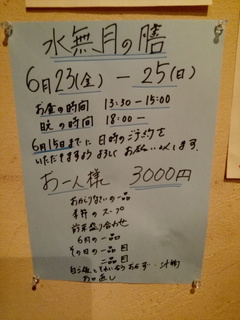 水無月の膳
6月23(金) — 25(日)
お昼の時間 13:30-15:00
晩の時間 18:00—
6月15日までに 日時のご予約を
いただきますよう よろしく お願いいたします.
お一人様 3000円
おからないの一品
季節のスープ
前菜盛り合わせ
6月の一品
その日の一品目
二品目
汁物
お口直し